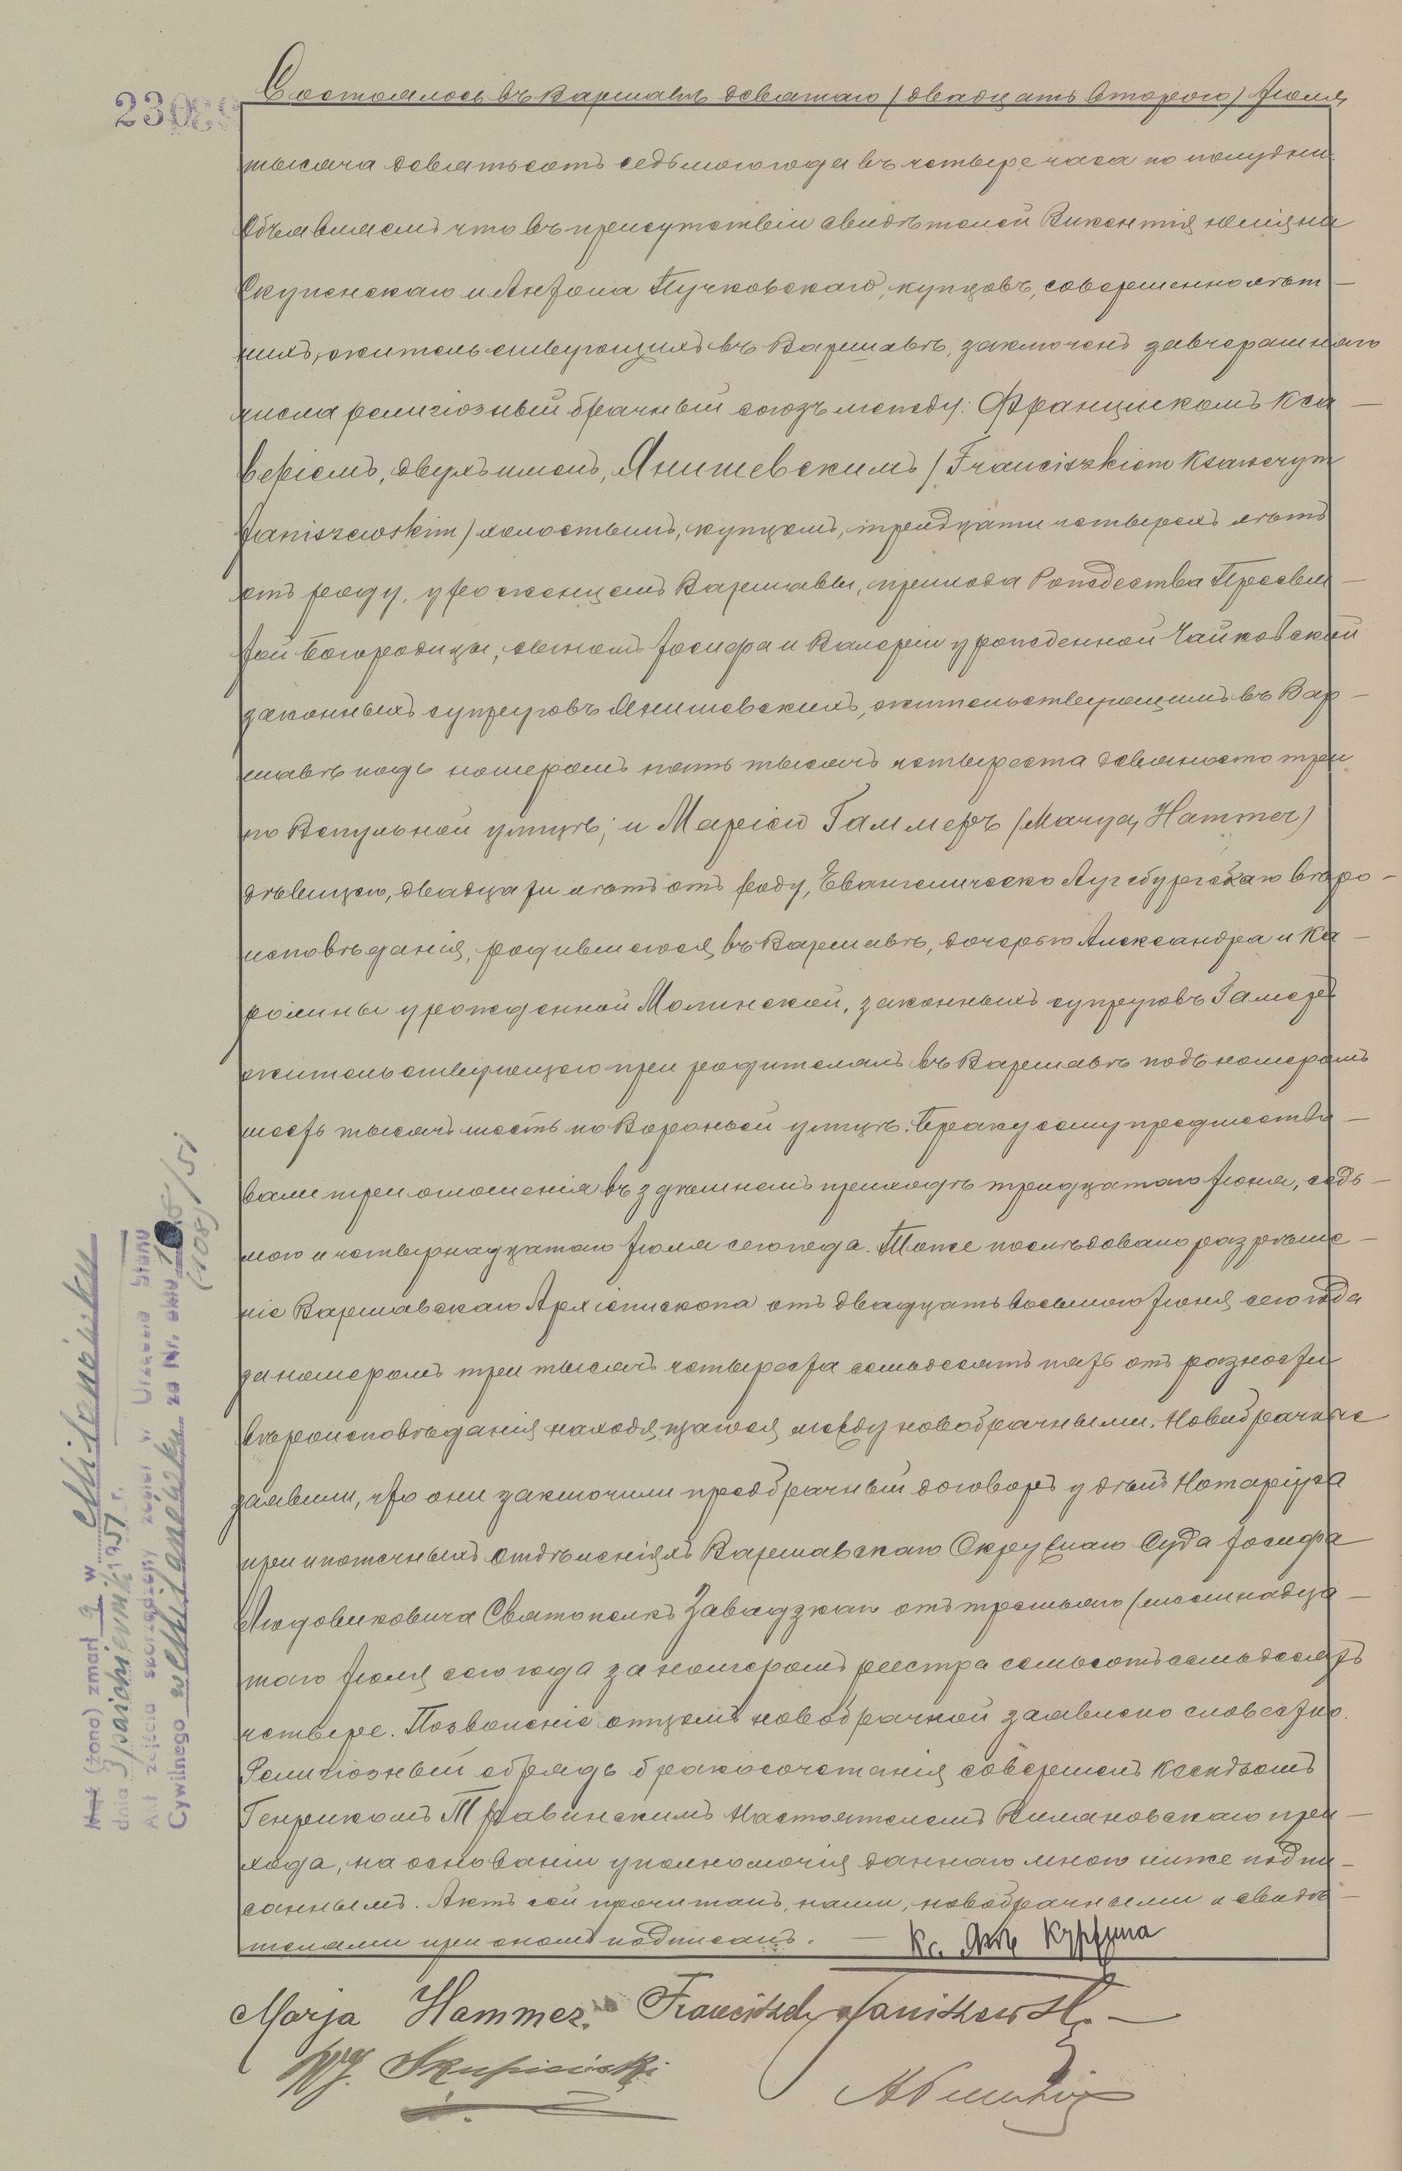 23089
Состоялось въ Варшавѣ девятаго (двадцать втораго) Іюля
тысяча девятьсотъ седьмого года въ четыре часа по полудни.
Объявляемъ что въ присутствіи свидѣтелей Викентія Юліяна
Скупенскаго и Антона Пучковскаго, купцовъ, совершеннолѣт-
нихъ, жительствующихъ въ Варшавѣ, заключенъ завчерашняго
числа религіозный брачный союзъ между: Францискомъ Кса-
веріемъ, двухъ именъ, Янишевскимъ (Franciszkiem Ksawerym
Janiszewskim) холостымъ, купцомъ, тридцати четырехъ лѣтъ
отъ роду, уроженцемъ Варшавы, прихода Рождества Пресвя-
той Богородицы, сыномъ Іосифа и Валеріи урожденной Чайковской
законныхъ супруговъ Янишевскихъ, жительствующимъ въ Вар-
шавѣ подъ номеромъ пять тысячъ четыреста девяносто три
по Вспульной улицѣ; и Маріею Гаммеръ (Maryą Hammer)
дѣвицею, двадцати лѣтъ отъ роду, Евангелическо Аугсбургскаго вѣро-
исповѣданія, родившеюся въ Варшавѣ, дочерью Александра и Ка-
ролины урожденной Молинской, законныхъ супруговъ Гамеръ
жительствующею при родителяхъ въ Варшавѣ подъ номеромъ
шесть тысячъ шесть по Вороньей улицѣ. Браку сему предшество-
вали три оглашенія въ здѣшнемъ приходѣ тридцатаго Іюня, седь-
мого и четырнадцатаго Іюля сего года. Тоже послѣдовало разрѣше-
ніе Варшавскаго Архіепископа отъ двадцать восьмого Іюня сего года
за номеромъ три тысячи четыреста семьдесятъ пять отъ разности
вѣроисповѣданія находящагося между новобрачными. Новобрачные
заявили, что они заключили предбрачный договоръ у дѣлъ Нотаріуса
при ипотечныхъ отдѣленіяхъ Варшавскаго Окружнаго Суда Іосифа
Людовиковича Святополкъ Завадзкаго отъ третьяго (шестнадца-
таго Іюля сего года за номеромъ реестра семьсотъ семьдесятъ
четыре. Позволеніе отцомъ новобрачной заявлено словестно.
Религіозный обрядъ бракосочетанія совершенъ Ксендзомъ
Генрикомъ Травинскимъ Настоятелемъ Вилановскаго при-
хода, на основаніи уполномочія даннаго мною ниже подпи-
саннымъ. Актъ сей прочитанъ, нами, новобрачными и свидѣ-
телями при ономъ подписанъ. —
Marja Hammer. Franciszek Janiszewski. —
WJ. Skupieński
Mąż (żona) zmarł a w Milanówku
dnia 3 października 1951 r.
Akt zejścia sporządzony został w Urzędzie Stanu
Cywilnego w Milanówku za Nr. aktu
(108)/51